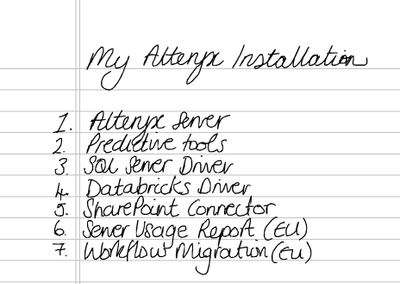 My Alteryx Installation
1. Alteryx Server
2. Predictive tools
3. SQL Server Driver
4. Databricks Driver
5. SharePoint Connector
6. Server Usage Report (EU)
7. Workflow Migration (EU)